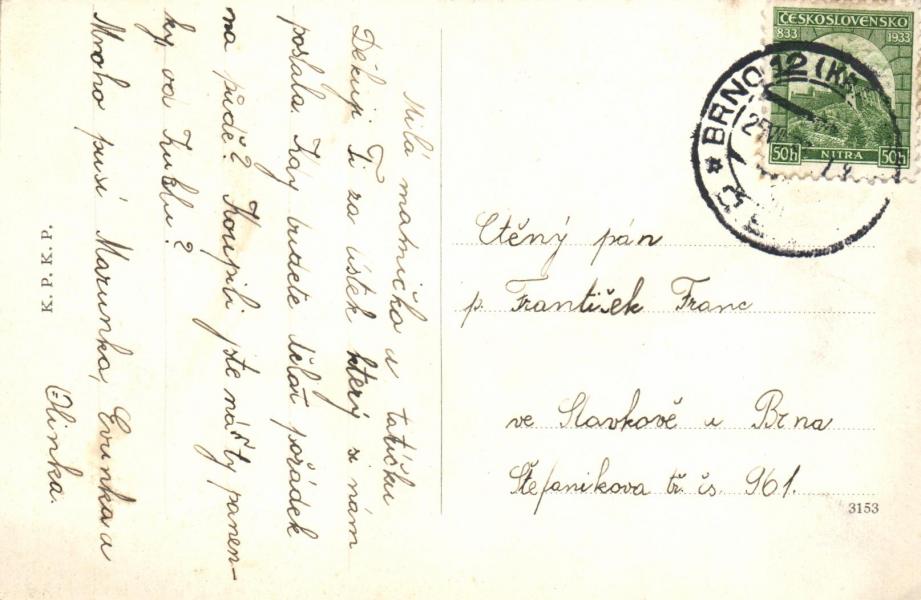 Milá matničko a tatíčku
Děkuji Ti za lístek který si nám
poslala. Kdy budete dělat pořádek
na půdě? Koupili jste nářty panen-
ky od Zuzbu?
Mnoho pusí Marunka, Evunka a
Olinka.
K. P. K. P.
ČESKOSLOVENSKO
833 1933
50h NITRA 50h
BRNO 12
Ctěný pán
p. František Franc
ve Slavkově u Brna
Štefanikova tř. čs. 961.
3153